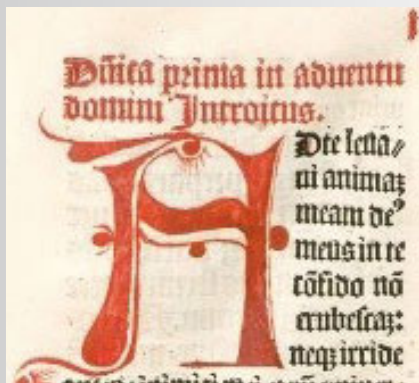 Dñica prima in aduentu
domini Introitus.
A Dte leua/
ui animaȝ
meam deꝰ
meus in te
cōfido nō
erubescaȝ:
neqȝ irride